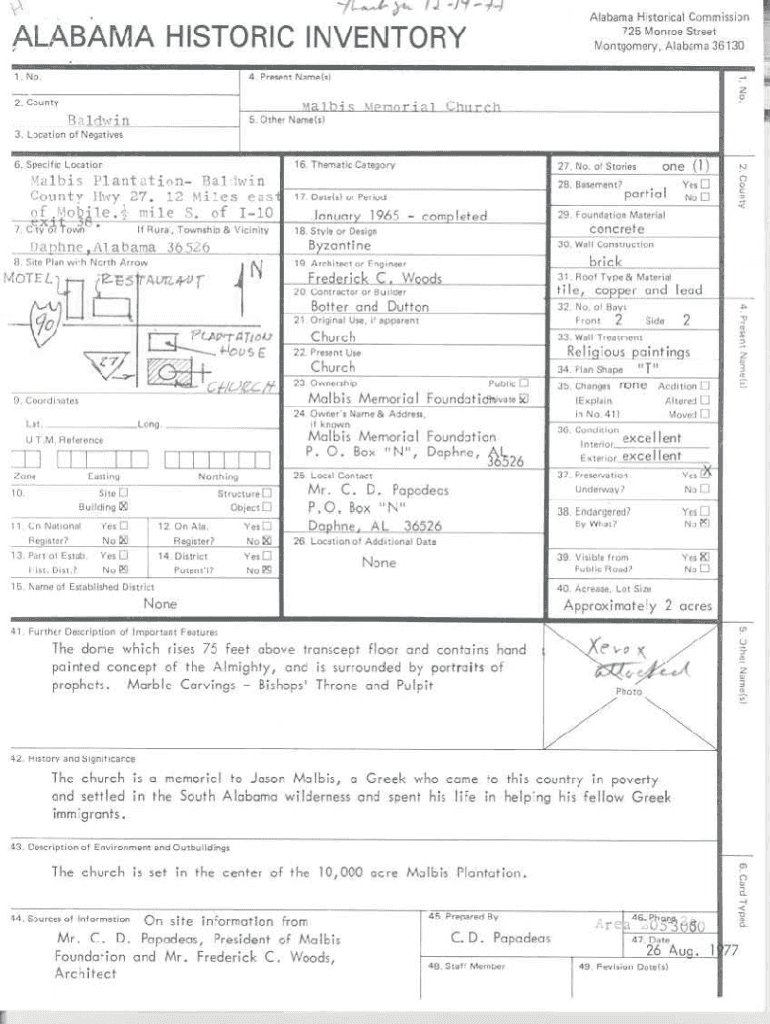 Thank you 12-19-77
ALABAMA HISTORIC INVENTORY
Alabama Historical Commission
725 Monroe Street
Montgomery, Alabama 36130
1. No.
2. County
Baldwin
3. Location of Negatives
4. Present Name(s)
Malbis Memorial Church
5. Other Name(s)
6. Specific Location
Malbis Plantation- Baldwin
County Hwy 27. 12 Miles east
of Mobile.½ mile S. of I-10
exit 38.
7. City or Town If Rural, Township & Vicinity
Daphne,Alabama 36526
8. Site Plan with North Arrow
MOTEL
RESTAURAUT
N
90
PLANTATION
HOUSE
27
CHURCH
9. Coordinates
Lat. Long.
U.T.M. Reference
Zone Easting Northing
10. Site ☐ Structure ☐
Building ☒ Object ☐
11. On National Yes ☐
Register? No ☒
12. On Ala. Yes ☐
Register? No ☒
13. Part of Estab. Yes ☐
Hist. Dist.? No ☒
14. District Yes ☐
Potent'l? No ☒
15. Name of Established District
None
16. Thematic Category
17. Date(s) or Period
January 1965 - completed
18. Style or Design
Byzantine
19. Architect or Engineer
Frederick C. Woods
20. Contractor or Builder
Botter and Dutton
21. Original Use, if apparent
Church
22. Present Use
Church
23. Ownership Public ☐
Malbis Memorial Foundation Private ☒
24. Owner's Name & Address,
if known
Malbis Memorial Foundation
P. O. Box "N", Daphne, AL
36526
25. Local Contact
Mr. C. D. Papadeas
P.O. Box "N"
Daphne, AL 36526
26. Location of Additional Data
None
27. No. of Stories one (1)
28. Basement? Yes ☐
partial No ☐
29. Foundation Material
concrete
30. Wall Construction
brick
31. Roof Type & Material
tile, copper and lead
32. No. of Bays
Front 2 Side 2
33. Wall Treatment
Religious paintings
34. Plan Shape "T"
35. Changes none Addition ☐
(Explain Altered ☐
in No. 41) Moved ☐
36. Condition
Interior excellent
Exterior excellent
37. Preservation Yes ☒
Underway? No ☐
38. Endangered? Yes ☐
By What? No ☒
39. Visible from Yes ☒
Public Road? No ☐
40. Acreage, Lot Size
Approximately 2 acres
41. Further Description of Important Features
The dome which rises 75 feet above transcept floor and contains hand
painted concept of the Almighty, and is surrounded by portraits of
prophets. Marble Carvings - Bishops' Throne and Pulpit
Xerox
attached
Photo
42. History and Significance
The church is a memorial to Jason Malbis, a Greek who came to this country in poverty
and settled in the South Alabama wilderness and spent his life in helping his fellow Greek
immigrants.
43. Description of Environment and Outbuildings
The church is set in the center of the 10,000 acre Malbis Plantation.
44. Sources of Information On site information from
Mr. C. D. Papadeas, President of Malbis
Foundation and Mr. Frederick C. Woods,
Architect
45. Prepared By
C.D. Papadeas
46. Phone
Area
47. Date
26 Aug. 1977
48. Staff Member
49. Revision Date(s)
1. No.
2. County
4. Present Name(s)
5. Other Name(s)
6. Card Typed